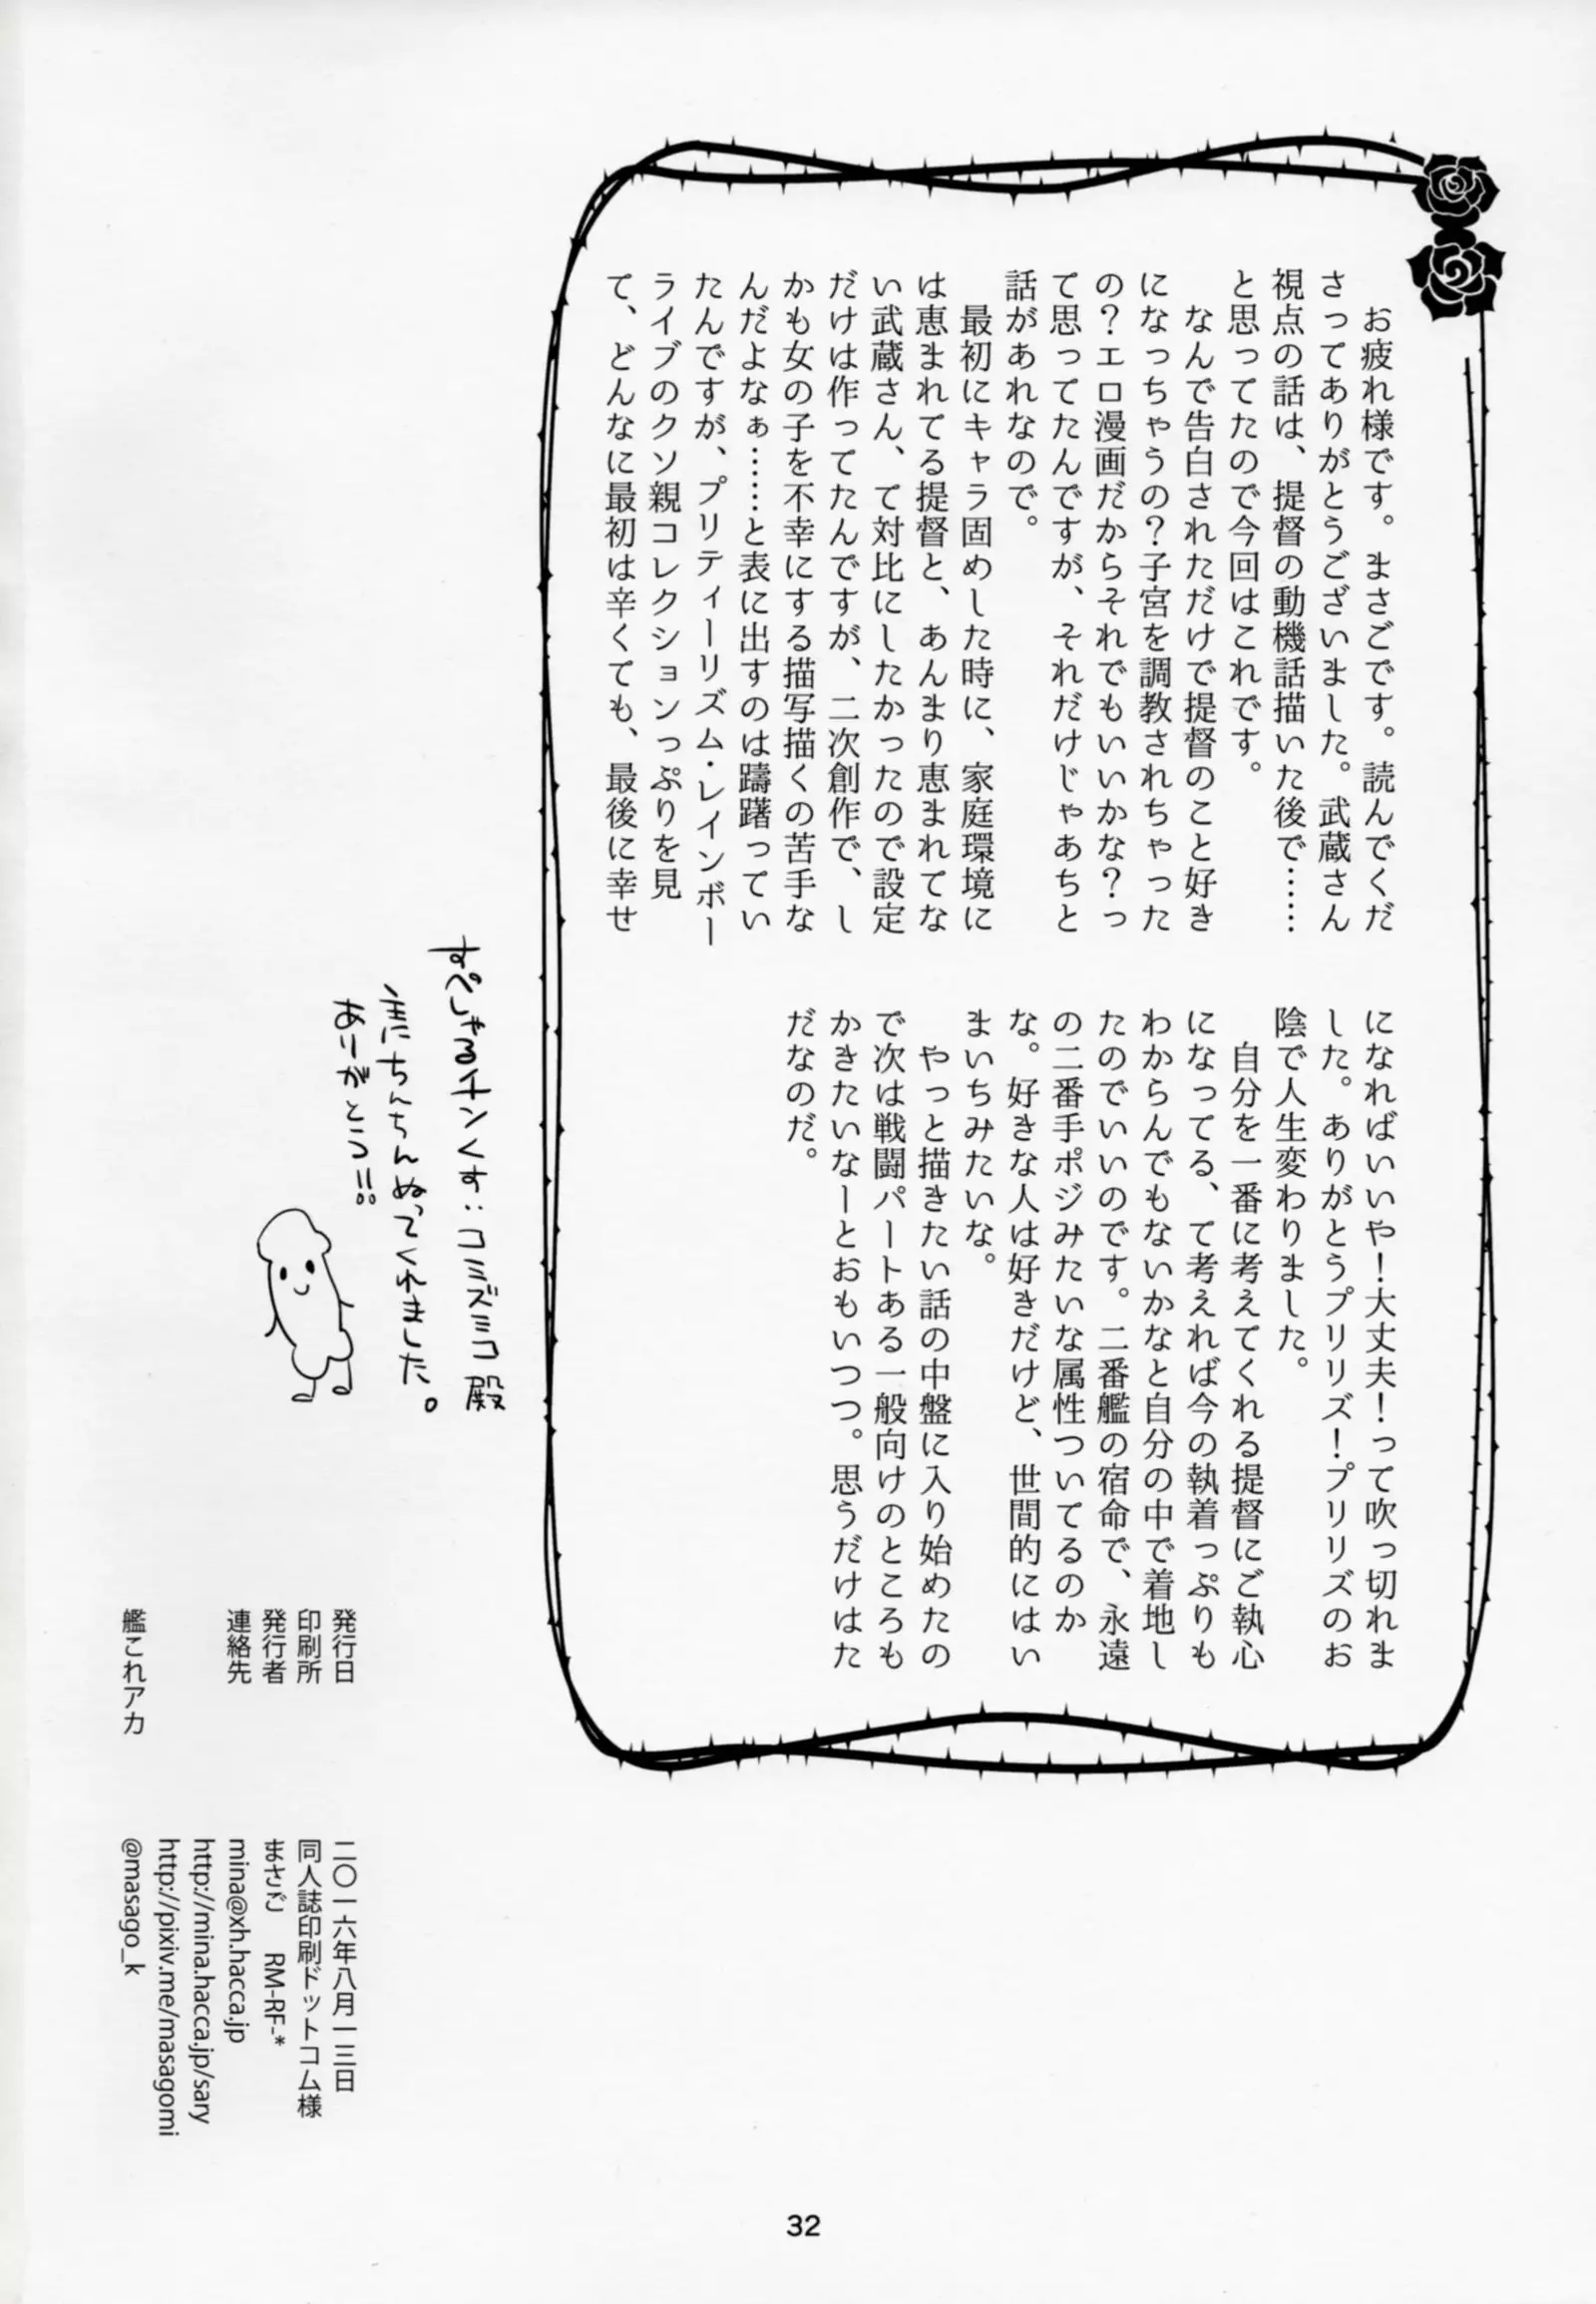 お疲れ様です。まさごです。読んでくだ
さってありがとうございました。武蔵さん
視点の話は、提督の動機話描いた後で……
と思ってたので今回はこれです。
なんで告白されただけで提督のこと好き
になっちゃうの？子宮を調教されちゃった
の？エロ漫画だからそれでもいいかな？っ
て思ってたんですが、それだけじゃあちと
話があれなので。
最初にキャラ固めした時に、家庭環境に
は恵まれてる提督と、あんまり恵まれてな
い武蔵さん、て対比にしたかったので設定
だけは作ってたんですが、二次創作で、し
かも女の子を不幸にする描写描くの苦手な
んだよなぁ……と表に出すのは躊躇ってい
たんですが、プリティーリズム・レインボー
ライブのクソ親コレクションっぷりを見
て、どんなに最初は辛くても、最後に幸せ
になればいいや！大丈夫！って吹っ切れま
した。ありがとうプリリズ！プリリズのお
陰で人生変わりました。
自分を一番に考えてくれる提督にご執心
になってる、て考えれば今の執着っぷりも
わからんでもないかなと自分の中で着地し
たのでいいのです。二番艦の宿命で、永遠
の二番手ポジみたいな属性ついてるのか
な。好きな人は好きだけど、世間的にはい
まいちみたいな。
やっと描きたい話の中盤に入り始めたの
で次は戦闘パートある一般向けのところも
かきたいなーとおもいつつ。思うだけはた
だなのだ。
すぺしゃるチンくす：コミズミコ殿
主にちんちんぬってくれました。
ありがとう!!
発行日　二〇一六年八月一三日
印刷所　同人誌印刷ドットコム様
発行者　まさご　RM-RF-*
連絡先　mina@xh.hacca.jp
http://mina.hacca.jp/sary
http://pixiv.me/masagomi
艦これアカ　@masago_k
32